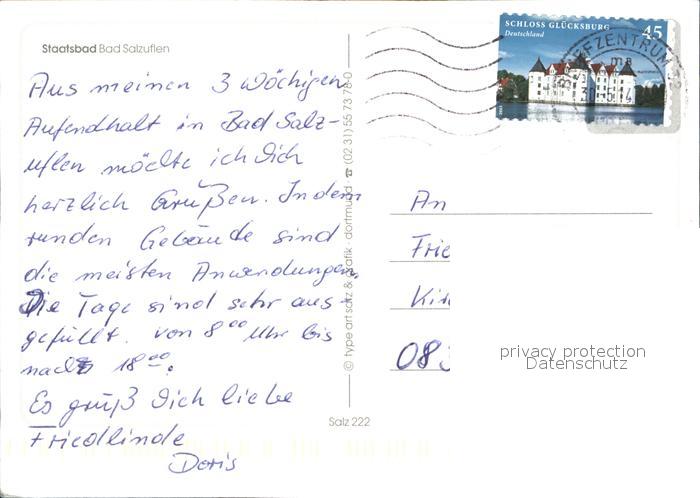 Staatsbad Bad Salzuflen
Aus meinen 3 Wöchigen
Aufendhalt in Bad Salz-
uflen möchte ich Dich
herzlich Grüßen. In dem
runden Gebäude sind
die meisten Anwendungen.
Die Tage sind sehr aus-
gefüllt. von 8⁰⁰ Uhr bis
nach 18⁰⁰.
Es grüß Dich liebe
Friedlinde
Doris
© type art satz & grafik · dortmund · ☎ (02 31) 55 73 78-0
Salz 222
SCHLOSS GLÜCKSBURG 45
Deutschland
BRIEFZENTRUM
An
Frie
Kir
083
privacy protection
Datenschutz